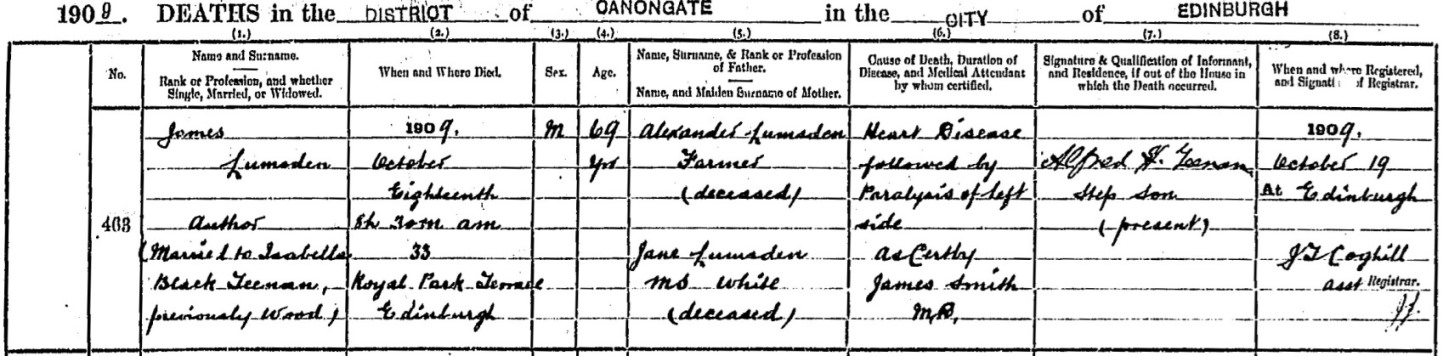 1909. DEATHS in the DISTRICT of CANONGATE in the CITY of EDINBURGH
(1.) (2.) (3.) (4.) (5.) (6.) (7.) (8.)
No.
Name and Surname.
Rank or Profession, and whether
Single, Married, or Widowed.
When and Where Died.
Sex.
Age.
Name, Surname, & Rank or Profession
of Father.
Name, and Maiden Surname of Mother.
Cause of Death, Duration of
Disease, and Medical Attendant
by whom certified.
Signature & Qualification of Informant,
and Residence, if out of the House in
which the Death occurred.
When and where Registered,
and Signature of Registrar.
463
James
Lumsden
Author
(Married to Isabella
Black Teenan,
previously Wood)
1909,
October
Eighteenth
8h 30m am
33
Royal Park Terrace
Edinburgh
M
69
yrs
Alexander Lumsden
Farmer
(deceased)
Jane Lumsden
MS White
(deceased)
Heart Disease
followed by
Paralysis of left
side
as Cert by
James Smith
M.B.
Alfred H. Teenan
Step son
(present)
1909,
October 19
At Edinburgh
J T Coghill
asst Registrar.